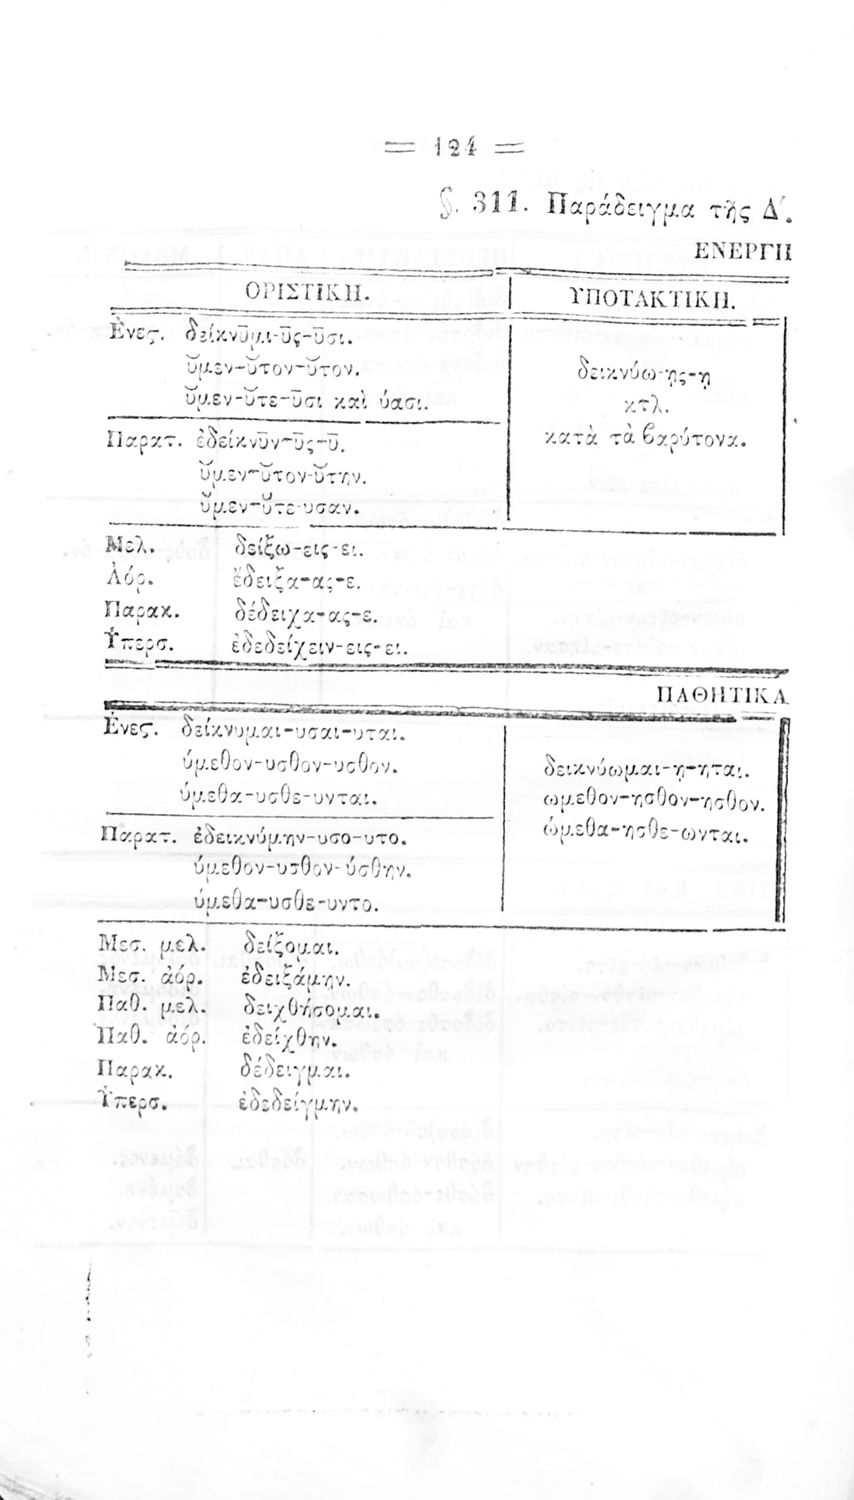 = 124 =
§. 311. Παράδειγμα τῆς Δ΄.
ΕΝΕΡΓΗ
ΟΡΙΣΤΙΚΗ.
Ἐνες. δείκνῡμι-ῡς-ῡσι.
ῠμεν-ῠτον-ῠτον.
ῠμεν-ῠτε-ῡσι καὶ ύασι.
Παρατ. ἐδείκνῡν-ῡς-ῡ.
ῠμεν-ῠτον-ῠτην.
ῠμεν-ῠτε-υσαν.
ΥΠΟΤΑΚΤΙΚΗ.
δεικνύω-ης-η
κτλ.
κατὰ τὰ βαρύτονα.
Μελ. δείξω-εις-ει.
Ἀόρ. ἔδειξα-ας-ε.
Παρακ. δέδειχα-ας-ε.
Ὑπερσ. ἐδεδείχειν-εις-ει.
ΠΑΘΗΤΙΚΑ
Ἐνες. δείκνυμαι-υσαι-υται.
ύμεθον-υσθον-υσθον.
ύμεθα-υσθε-υνται.
Παρατ. ἐδεικνύμην-υσο-υτο.
ύμεθον-υσθον-ύσθην.
ύμεθα-υσθε-υντο.
δεικνύωμαι-η-ηται.
ωμεθον-ησθον-ησθον.
ώμεθα-ησθε-ωνται.
Μεσ. μελ. δείξομαι.
Μεσ. ἀόρ. ἐδειξάμην.
Παθ. μελ. δειχθήσομαι.
Παθ. ἀόρ. ἐδείχθην.
Παρακ. δέδειγμαι.
Ὑπερσ. ἐδεδείγμην.